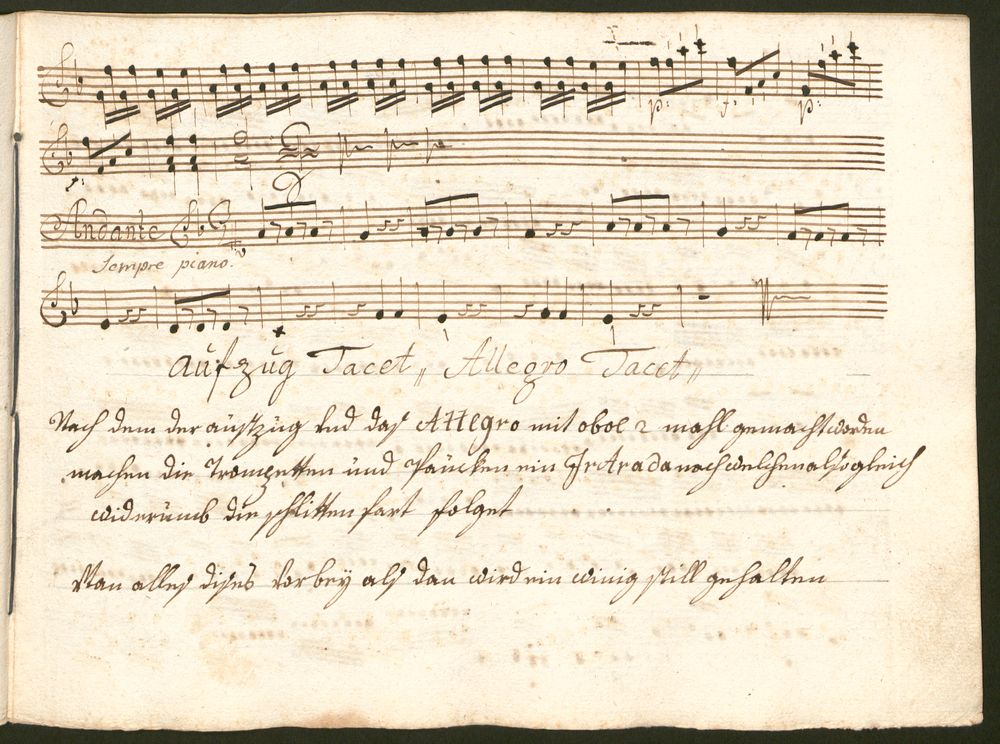 p: f: p:
f:
Andante
Sempre piano.
Aufzug Tacet,, Allegro Tacet,,
Nach dem der aufzug und das Allegro mit oboe 2 mahl gemacht worden
machen die Trompetten und Paucken ein Intrada nach welchen alsogleich
widerumb die schlittenfart folget
Wan alles dises vorbey als dan wird ein winig still gehalten